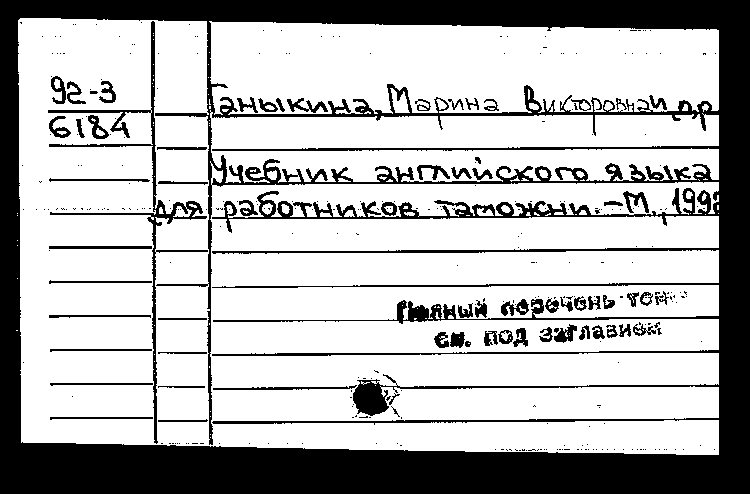 92-3
6184
Ганыкина, Марина Викторовна и др
Учебник английского языка
для работников таможни. - М., 1992
Полный перечень томов
см. под заглавием